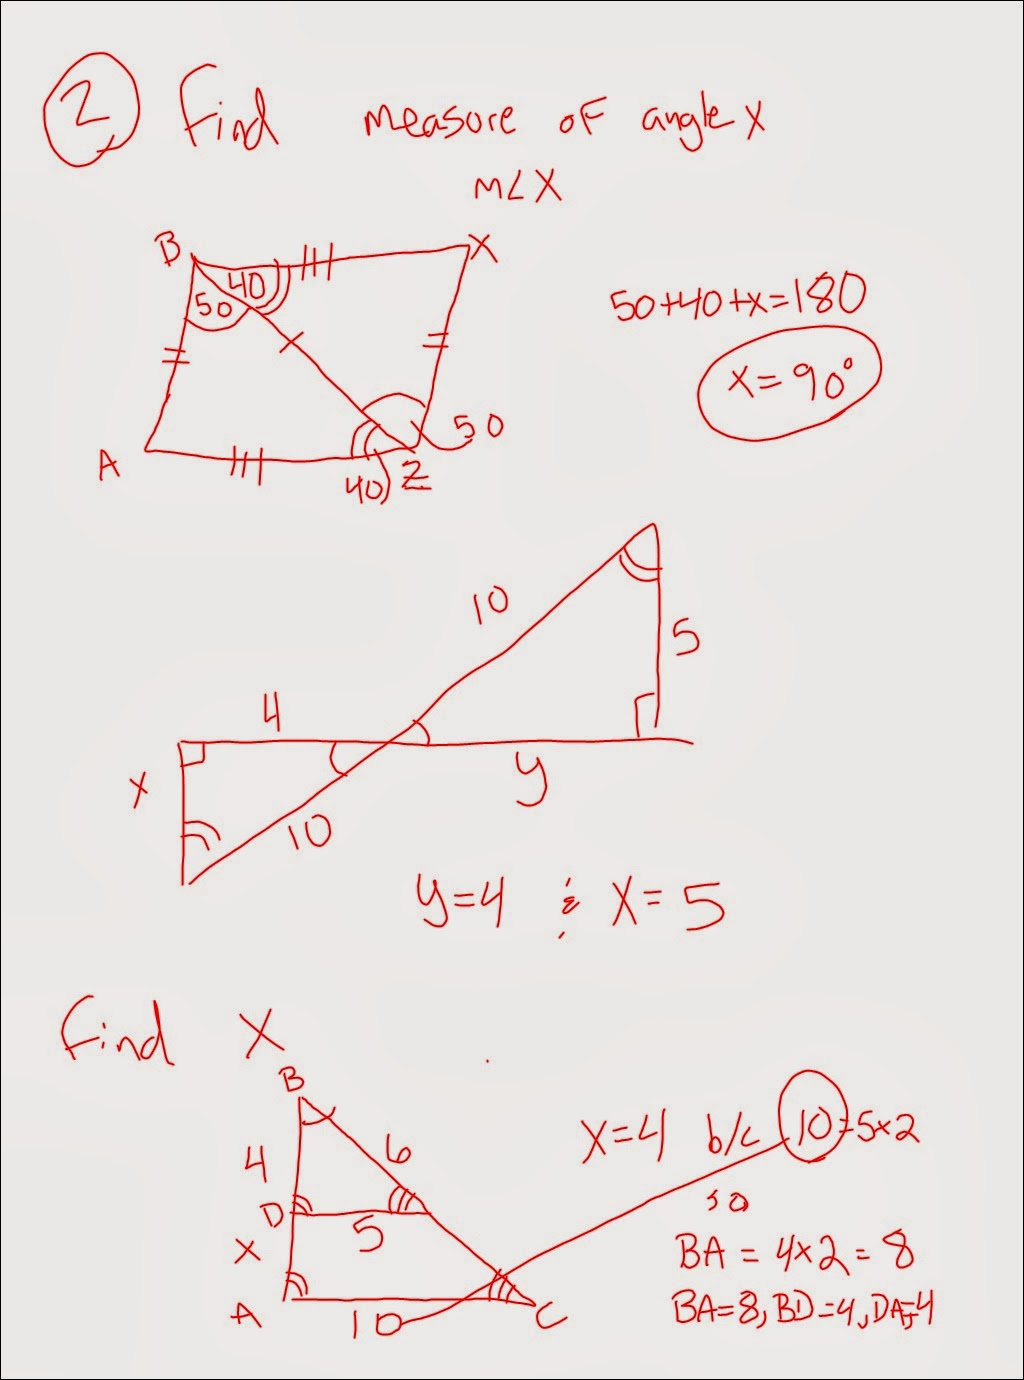 2 Find measure of angle X
m∠X
B X
40
50
50+40+x=180
x=90°
50
A
40 Z
10
5
4
X
y
10
y=4 & X=5
Find X
B
4 6
X=4 b/c 10=5x2
so
D 5
X
BA = 4x2=8
BA=8, BD=4, DA=4
A 10 C